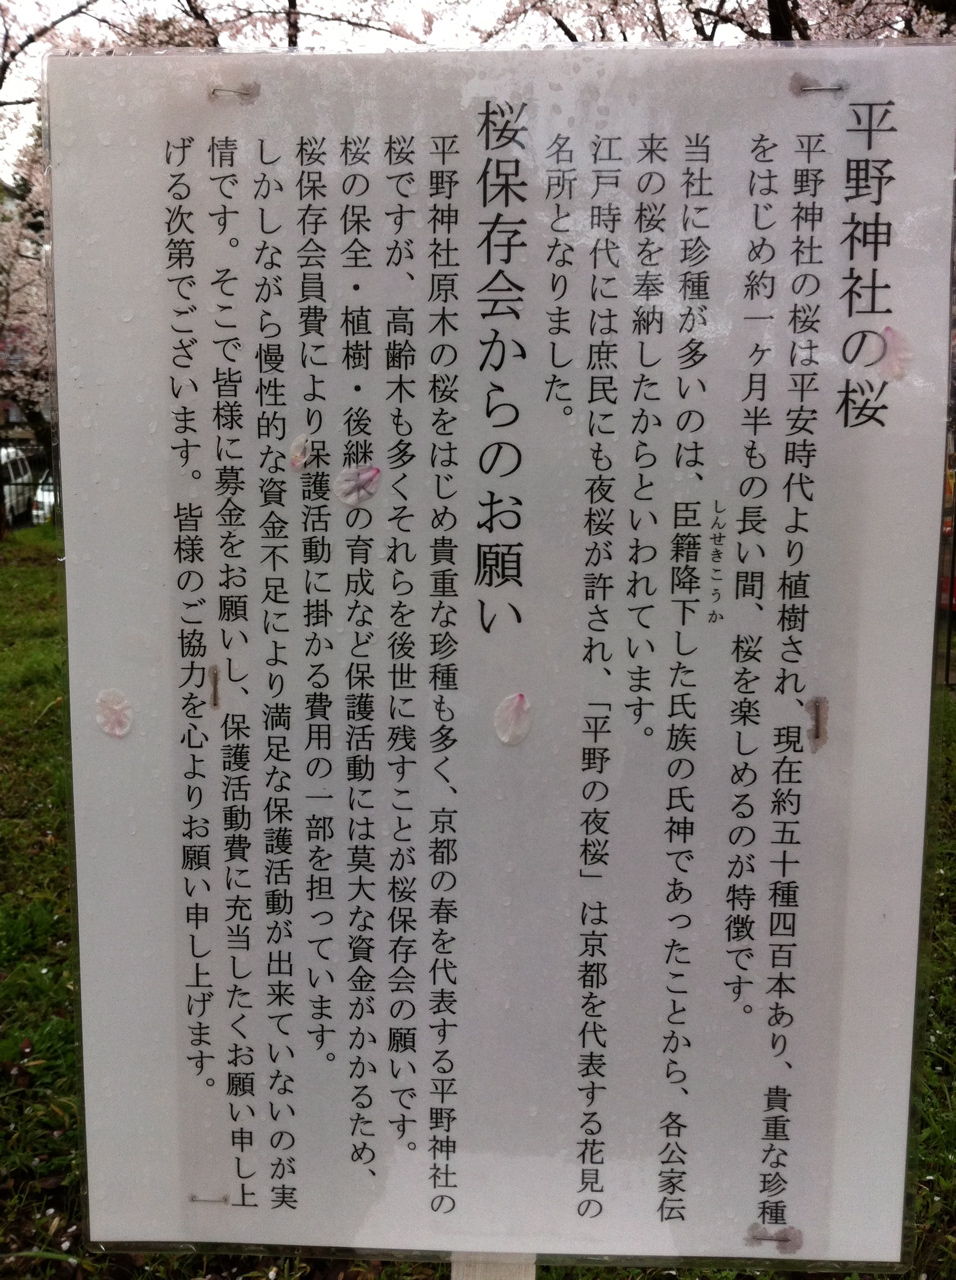 平野神社の桜
平野神社の桜は平安時代より植樹され、現在約五十種四百本あり、貴重な珍種
をはじめ約一ヶ月半もの長い間、桜を楽しめるのが特徴です。
当社に珍種が多いのは、臣籍降下した氏族の氏神であったことから、各公家伝
しんせきこうか
来の桜を奉納したからといわれています。
江戸時代には庶民にも夜桜が許され、「平野の夜桜」は京都を代表する花見の
名所となりました。
桜保存会からのお願い
平野神社原木の桜をはじめ貴重な珍種も多く、京都の春を代表する平野神社の
桜ですが、高齢木も多くそれらを後世に残すことが桜保存会の願いです。
桜の保全・植樹・後継木の育成など保護活動には莫大な資金がかかるため、
桜保存会員費により保護活動に掛かる費用の一部を担っています。
しかしながら慢性的な資金不足により満足な保護活動が出来ていないのが実
情です。そこで皆様に募金をお願いし、保護活動費に充当したくお願い申し上
げる次第でございます。皆様のご協力を心よりお願い申し上げます。